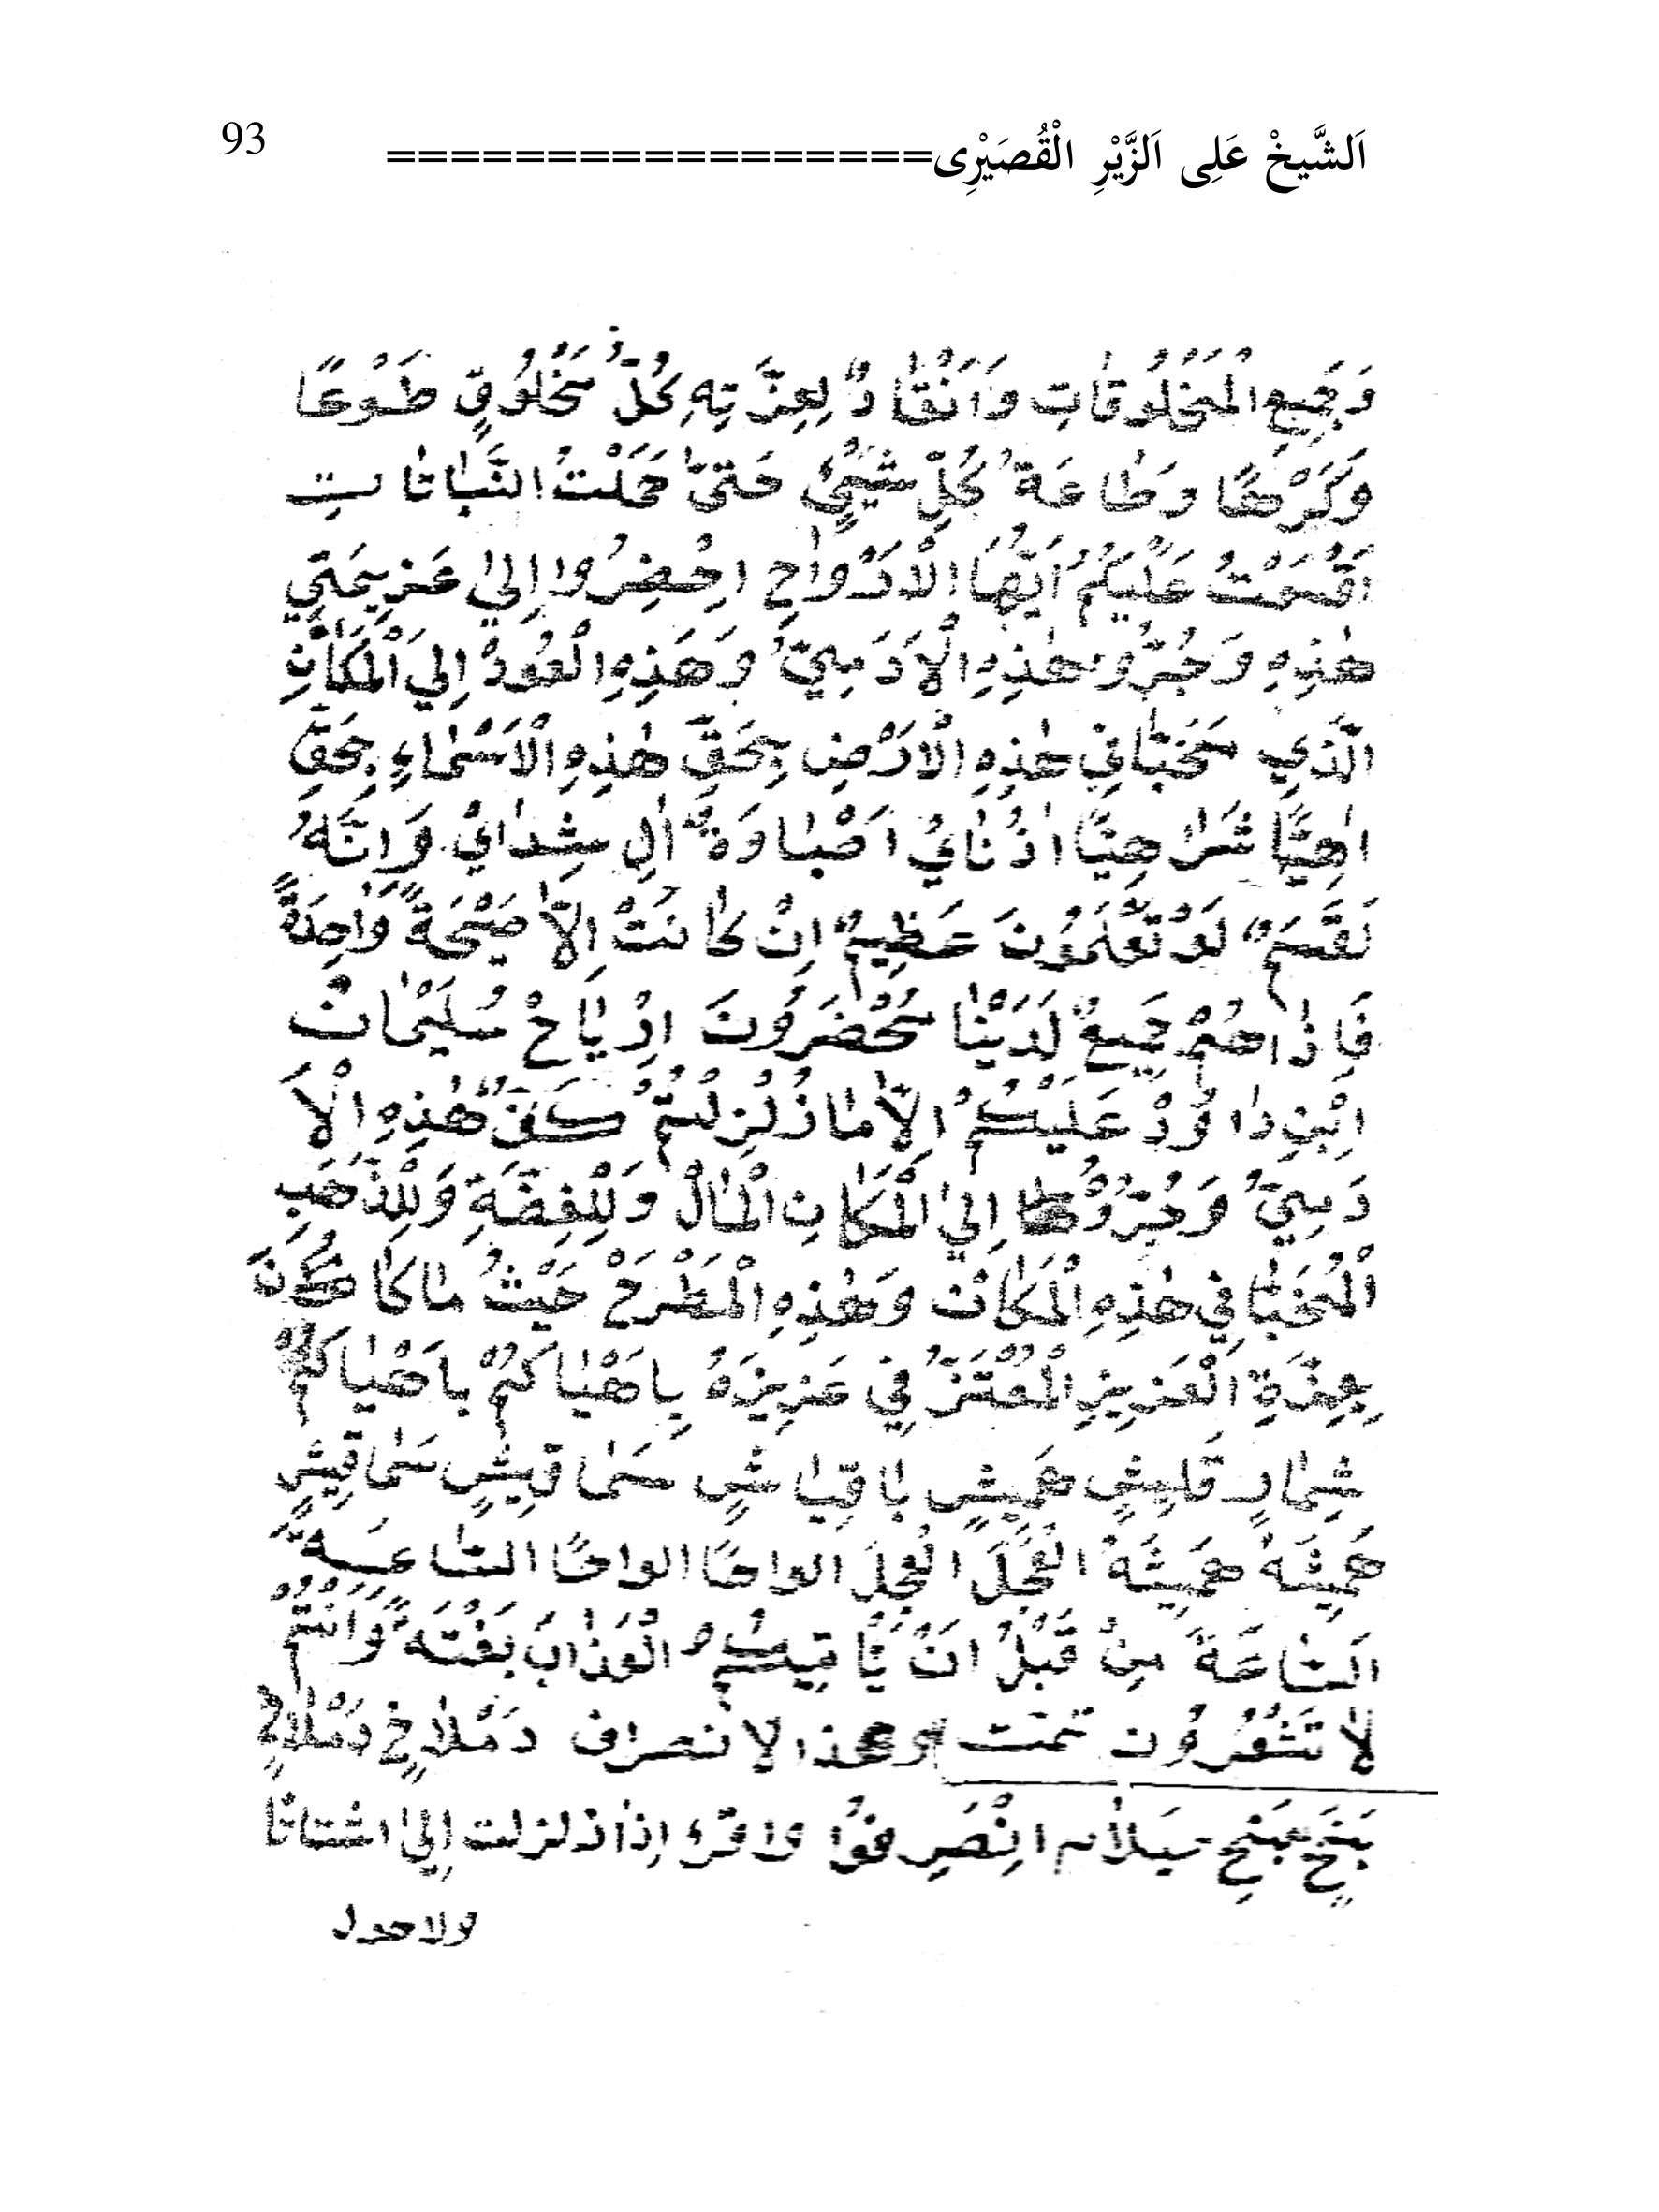 اَلشَّيخْ عَلِى اَلزَّيْرِ الْقُصَيْرِى================= 93
وَجَمِيعِ الْمَخْلُوقَاتِ وَاَنْقَادٌ لِعِزَّتِهِ كُلُّ مَخْلُوقٍ طَوْعًا
وَكَرْهًا وَطَاعَةُ كُلِّ شَيْئٍ حَتّىٰ حَمَلْتُ النَّبَاتَاتِ
اَقْسَمْتُ عَلَيْكُمْ اَيَّتُهَا الْاَرْوَاحِ احْضِرُوا اِلىٰ عَزِيمَتِي
هٰذِهِ وَجُرُّو هٰذِهِ الْاَدَمِيّ وَهَذِهِ الْعُودْ اِلىَ الْمَكَانِ
الَّذِي مَخَبَّا فِي هٰذِهِ الْاَرْضِ بِحَقِّ هٰذِهِ الْاَسْمَاءِ بِحَقِّ
اَهِيًّا شَرَاهِيًا اَذُنَايُ اَصْبَاوَةٌ اٰلِ شِدَايْ وَاِنَّهُ
لَقَسَمٌ لَوْ تَعْلَمُونَ عَظِيمٌ اِنْ كَانَتْ اِلاَّ صَيْحَةً وَاحِدَةً
فَاِذَا هُمْ جَمِيعٌ لَدَيْنَا مُحْضَرُونَ اِرْيَاحْ سُلَيْمَانْ
اِبْنِ دَاوُدْ عَلَيْكُمْ اِلاَّ مَا زُلْزِلْتُمْ هٰذِهِ الْاَ
دَمِيّ وَجُرُّوْهَا اِلىٰ الْمَكَانِ الْمَالْ وَلِلْفِضَّةِ وَلِلذَّهَبِ
الْمُخَبَّا فِي هٰذِهِ الْمَكَانْ وَهٰذِهِ الْمَطْرَحْ حَيْثُ مَا كَا
بِعِزَّةِ الْعَزِيزِ الْمُعْتَزّ فِي عَزِيزَهُ بِاَهْيَاكُمْ بِاَهْيَاكُمْ
شِمَارٍ قَلِيشٍ هَمِيشٍ بَاقِيَاشٍ سَمَاقِيشٍ سَمَاقِيشٍ
هَمِيشَهْ هَمِيشَهْ الْعَجَلَ الْعَجَلَ الواحًا الواحًا السَّاعَةً
اَلسَّاعَةً مِنْ قَبْلُ اَنْ يَأْتِيكُمُ الْعَذَابَ بَغْتَةً وَاَنْتُمْ
لاَ تَشْعُرُون تمت وهذ الانصراف دَمْلَاخٍ دَمْلَاخٍ
بَخٍ بَخٍ سَلاَم اِنْصَرِفوُا واقرء اِذَا زلزلت اِلىٰ اشتاتا
ولاحول